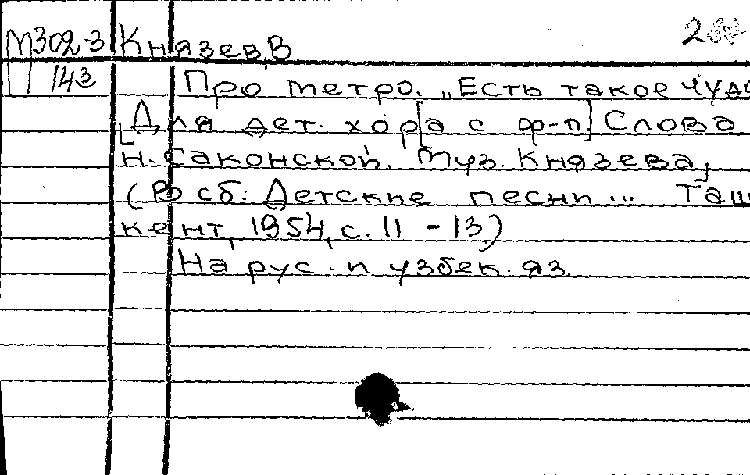 М302-3 Князев, В
П 143 Про метро. „Есть такое чуд
[Для дет. хор[а с ф-п] Слова
Н. Саконской. Муз. Князева,
(В сб: Детские песни... Таш
кент, 1954, с. 11 - 13.)
На рус. и узбек. яз.